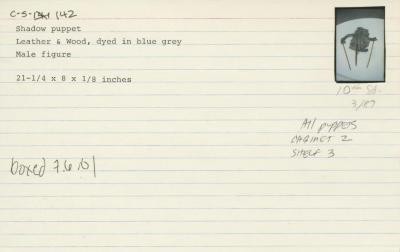 C-S-142
Shadow puppet
Leather & Wood, dyed in blue grey
Male figure
21-1/4 x 8 x 1/8 inches
10th St.
3/87
All puppets
CABINET 2
SHELF 3
boxed 7.6.01